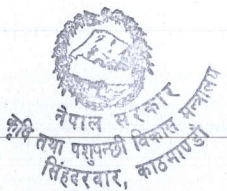 नेपाल सरकार
कृषि तथा पशुपन्छी विकास मन्त्रालय
सिंहदरवार, काठमाण्डौं